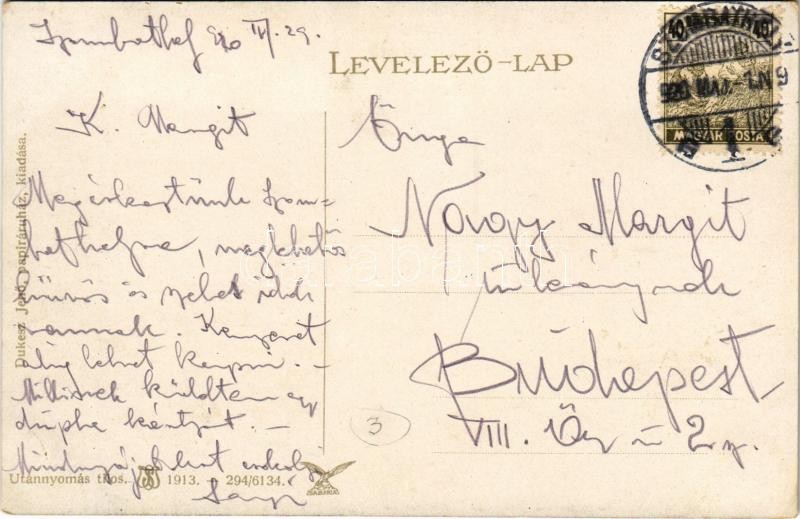 Szombathely 920 IV/29.
LEVELEZŐ-LAP
40 40
SZOMBATHELY
920 MÁJ. -1.N 9
MAGYAR POSTA
K. Margit
Megérkeztünk Szom-
bathelyre, meglehetős
hűvös és szeles idők
vannak. Kenyeret
alig lehet kapni. -
küldtem egy
dupla kártyát. -
Őnga
Nagy Margit
úrleánynak
Budapest
VIII. Őr u 2 sz.
3
Dukesz Jenő, papíráruház, kiadása.
Utánnyomás tilos. 1913. - 294/6134.
SABARIA
darabanth